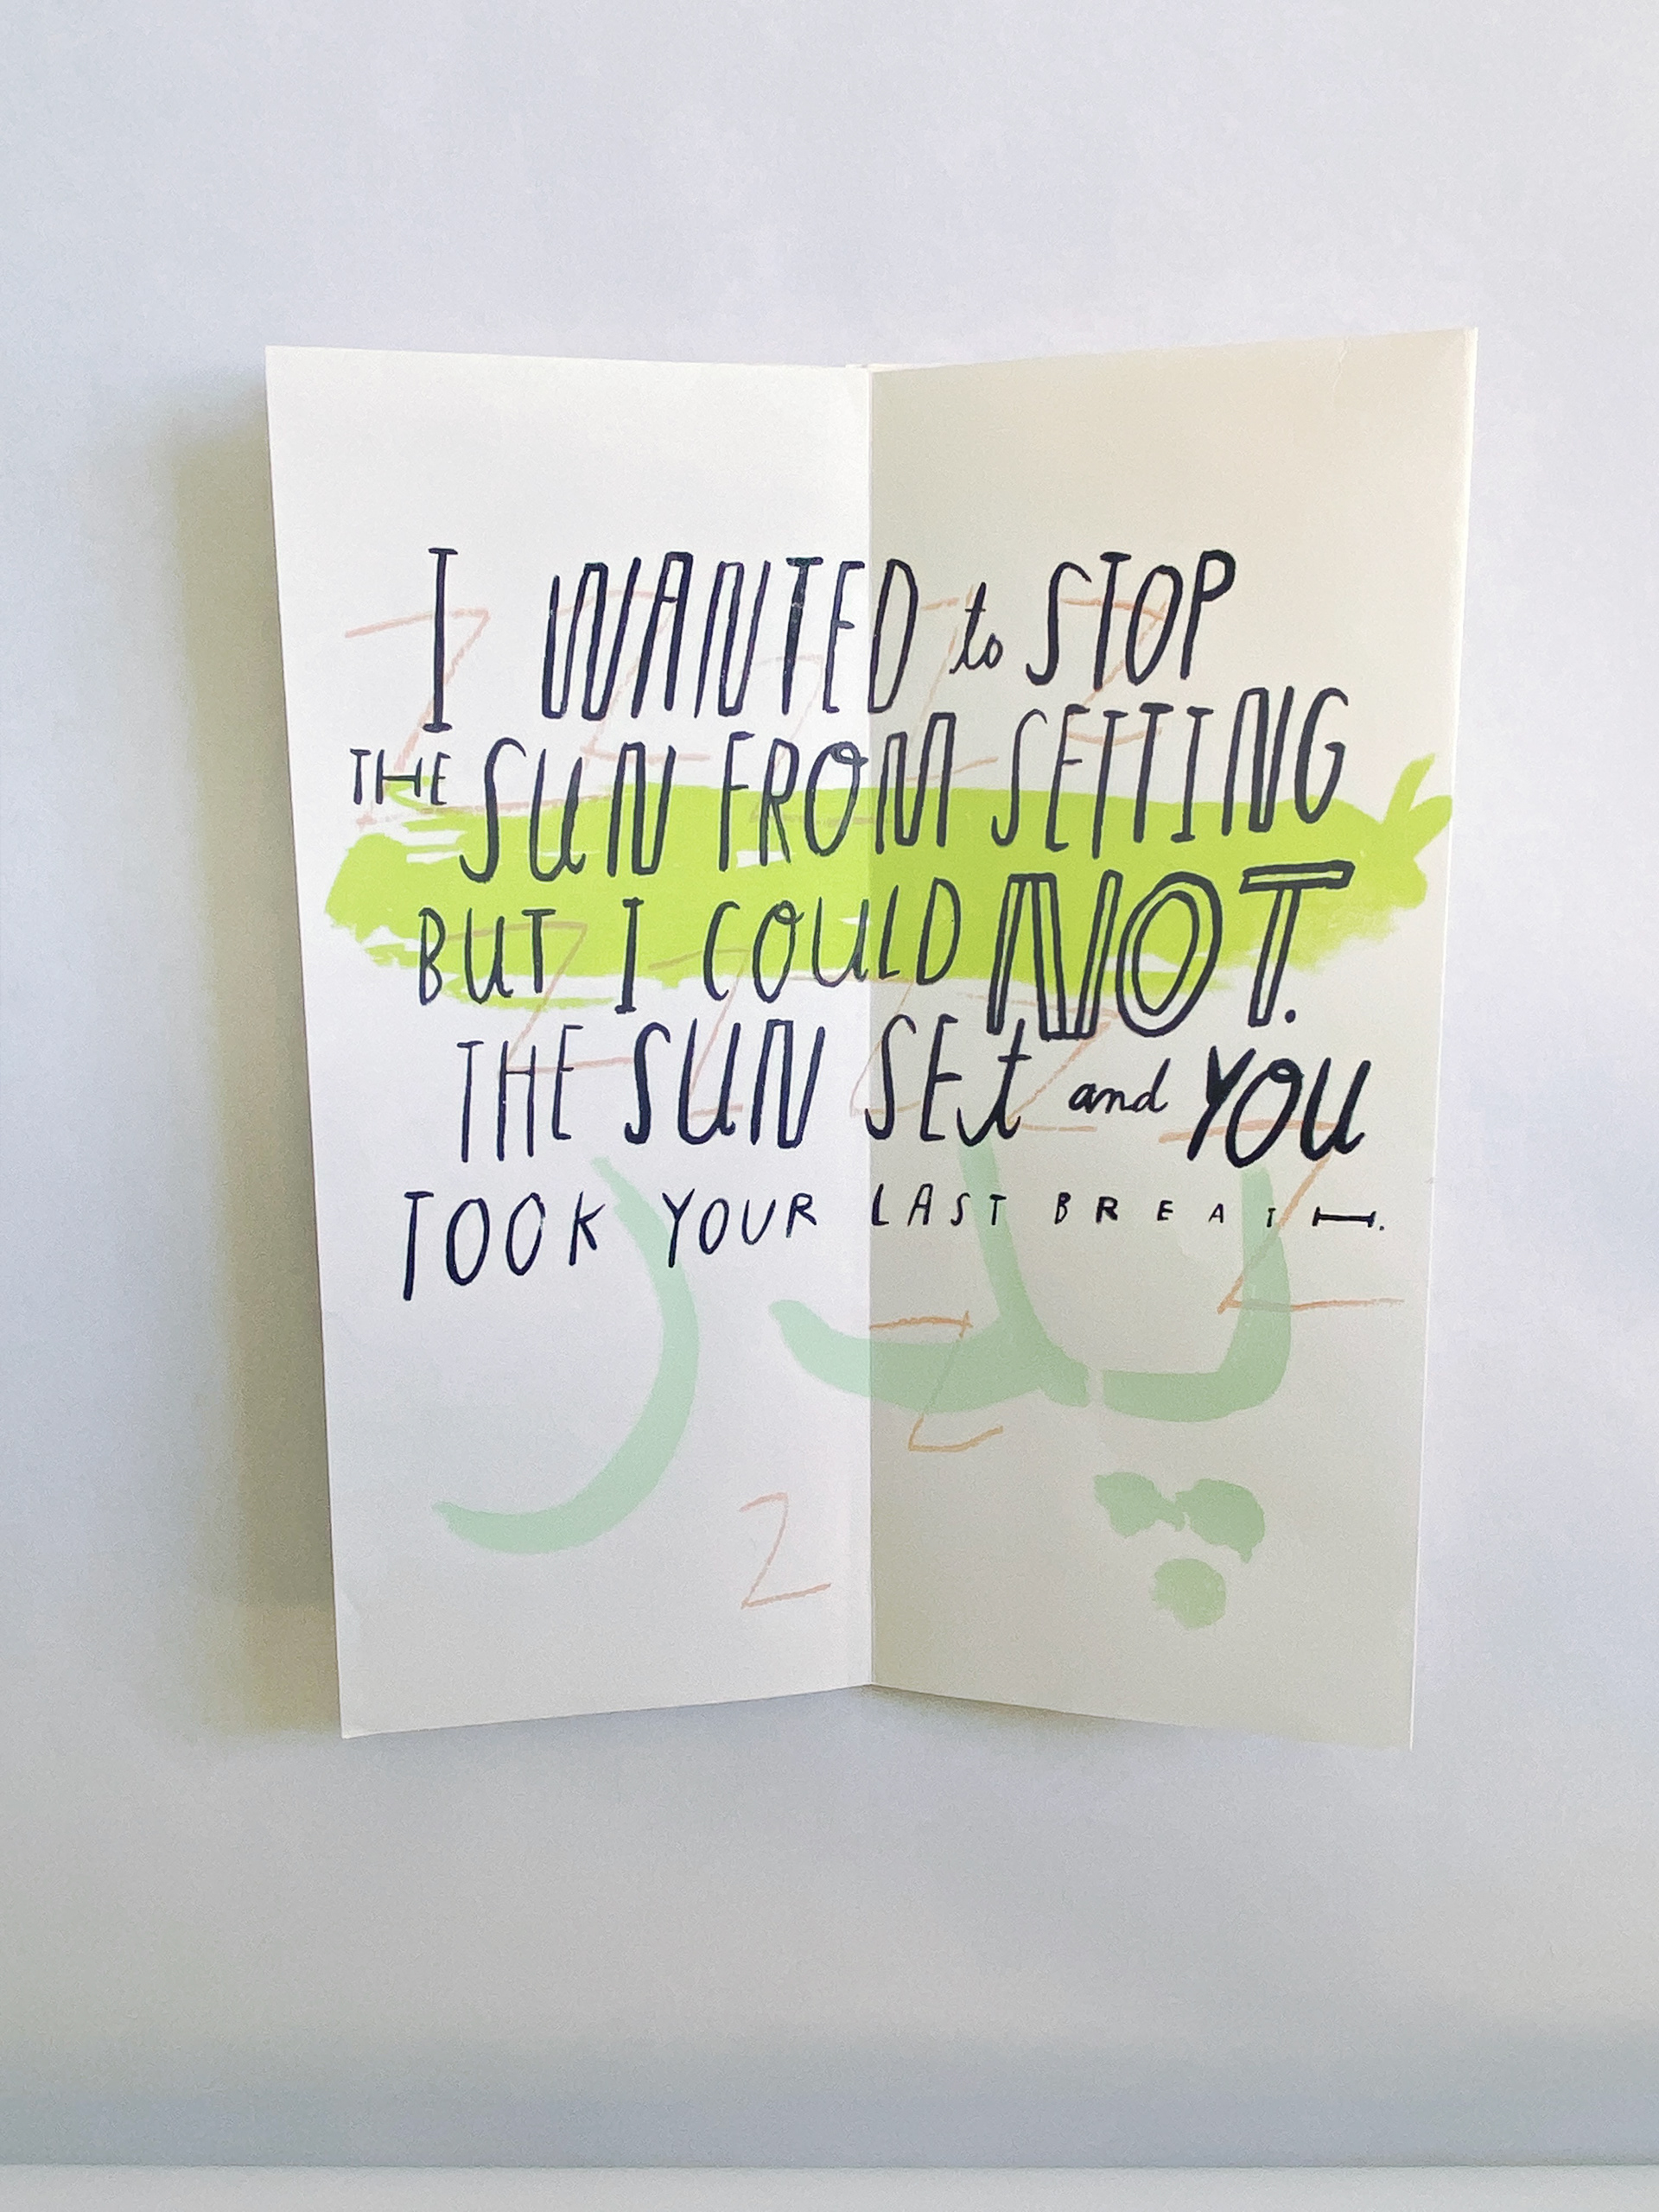 I WANTED to STOP
THE SUN FROM SETTING
BUT I COULD NOT.
THE SUN SEt and YOU
TOOK YOUR LAST BREATH.
پدر